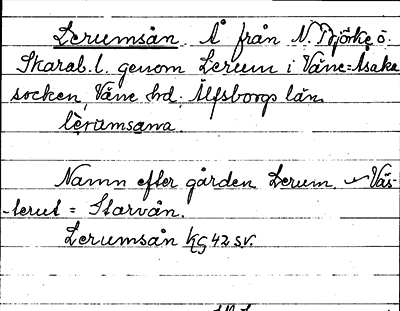 Lerumsån. Å från N. Björke ö
Skarab. l. genom Lerum i Väne-Åsaka
socken, Väne hd, Älfsborgs län.
lèrumsana.
Namn efter gården Lerum. Väs-
terut = Starvån.
Lerumsån KG 42 sv.